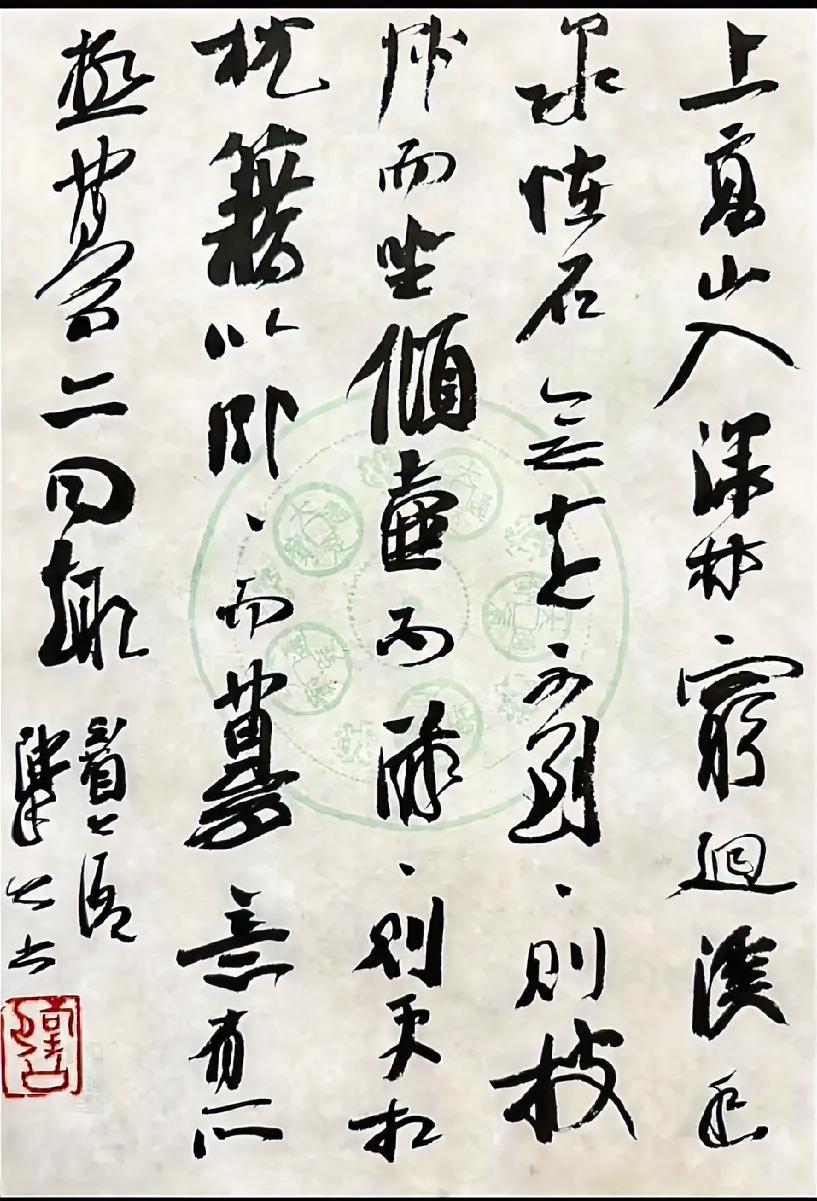 上高山入深林窮迴溪幽
泉怪石無遠不到、則披
草而坐傾壺而醉、則更相
枕藉以卧、而夢意有所
極夢亦同趣